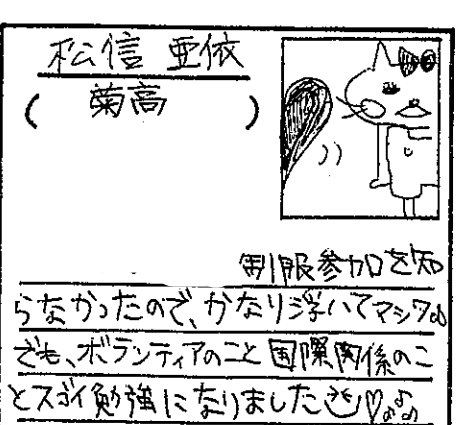 松信 亜依
(菊高)
制服参加を知
らなかったので、かなり浮いてマシタ
でも、ボランティアのこと国際関係のこ
とスゴイ勉強になりました